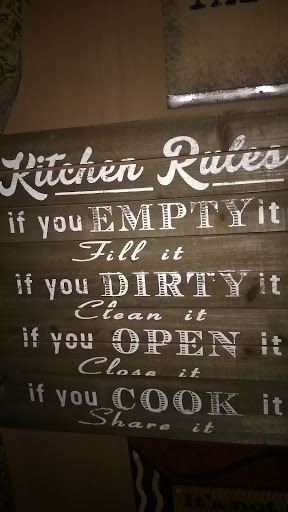 Kitchen Rules
if you EMPTY it
Fill it
if you DIRTY it
Clean it
if you OPEN it
Close it
if you COOK it
Share it